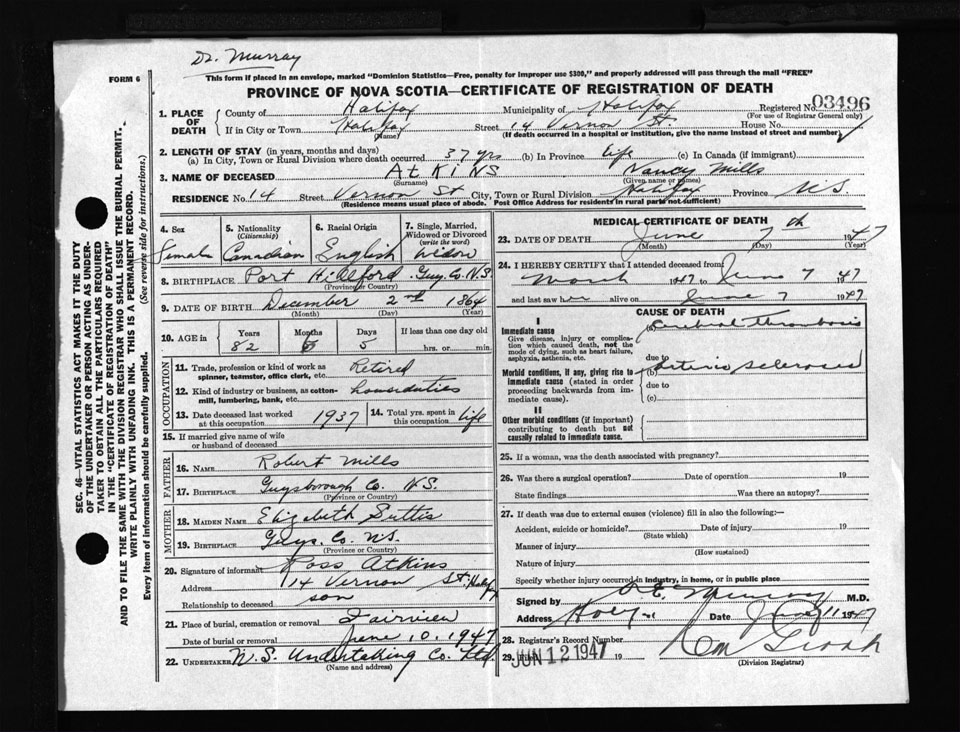 Dr. Murray
FORM 6
This form if placed in an envelope, marked "Dominion Statistics—Free, penalty for improper use $300," and properly addressed will pass through the mail "FREE"
PROVINCE OF NOVA SCOTIA—CERTIFICATE OF REGISTRATION OF DEATH
1. PLACE OF DEATH County of Halifax Municipality of Halifax Registered No. 03496
(For use of Registrar General only)
If in City or Town Halifax Street 14 Vernon St. House No.
(Name) (If death occurred in a hospital or institution, give the name instead of street and number)
2. LENGTH OF STAY (in years, months and days)
(a) In City, Town or Rural Division where death occurred 37 yrs (b) In Province life (c) In Canada (if immigrant)
3. NAME OF DECEASED Atkins Nancy Mills
(Surname) (Given name or names)
RESIDENCE No. 14 Street Vernon St City, Town or Rural Division Halifax Province N.S
(Residence means usual place of abode. Post Office Address for residents in rural parts not sufficient)
4. Sex 5. Nationality (Citizenship) 6. Racial Origin 7. Single, Married, Widowed or Divorced (write the word)
Female Canadian English Widow
8. BIRTHPLACE Port Hillford Guy. Co. N.S.
(Province or Country)
9. DATE OF BIRTH December 2nd 1864
(Month) (Day) (Year)
10. AGE in Years Months Days If less than one day old
82 6 5 hrs. or min.
OCCUPATION
11. Trade, profession or kind of work as spinner, teamster, office clerk, etc. Retired
12. Kind of industry or business, as cotton-mill, lumbering, bank, etc. housedutties
13. Date deceased last worked at this occupation 1937 14. Total yrs. spent in this occupation life
15. If married give name of wife or husband of deceased
FATHER
16. NAME Robert Mills
17. BIRTHPLACE Guysborough Co. N.S.
(Province or Country)
MOTHER
18. MAIDEN NAME Elizabeth
19. BIRTHPLACE Guys. Co. N.S.
(Province or Country)
20. Signature of informant Ross Atkins
Address 14 Vernon St. Halifax
Relationship to deceased son
21. Place of burial, cremation or removal Fairview
Date of burial or removal June 10. 1947
22. UNDERTAKER N.S. Undertaking Co. Ltd.
(Name and address)
MEDICAL CERTIFICATE OF DEATH
23. DATE OF DEATH June 7th 1947
(Month) (Day) (Year)
24. I HEREBY CERTIFY that I attended deceased from
March 1947 to June 7 1947
and last saw her alive on June 7 1947
CAUSE OF DEATH
I
Immediate cause (a) Cerebral Thrombosis
Give disease, injury or complication which caused death, not the mode of dying, such as heart failure, asphyxia, asthenia, etc.
due to
Morbid conditions, if any, giving rise to immediate cause (stated in order proceeding backwards from immediate cause). (b) Arterio Sclerosis
due to
(c)
II
Other morbid conditions (if important) contributing to death but not causally related to immediate cause.
25. If a woman, was the death associated with pregnancy?
26. Was there a surgical operation? Date of operation 19
State findings Was there an autopsy?
27. If death was due to external causes (violence) fill in also the following:—
Accident, suicide or homicide? Date of injury 19
(State which)
Manner of injury
(How sustained)
Nature of injury
Specify whether injury occurred in industry, in home, or in public place
Signed by Murray M.D.
Address Date June 11 1947
28. Registrar's Record Number
29. Filed JUN 12 1947 19
(Division Registrar)
SEC. 46—VITAL STATISTICS ACT MAKES IT THE DUTY
OF THE UNDERTAKER OR PERSON ACTING AS UNDER-
TAKER TO OBTAIN ALL THE PARTICULARS REQUIRED
IN THE "CERTIFICATE OF REGISTRATION OF DEATH"
AND TO FILE THE SAME WITH THE DIVISION REGISTRAR WHO SHALL ISSUE THE BURIAL PERMIT.
WRITE PLAINLY WITH UNFADING INK. THIS IS A PERMANENT RECORD.
Every item of information should be carefully supplied. (See reverse side for instructions.)